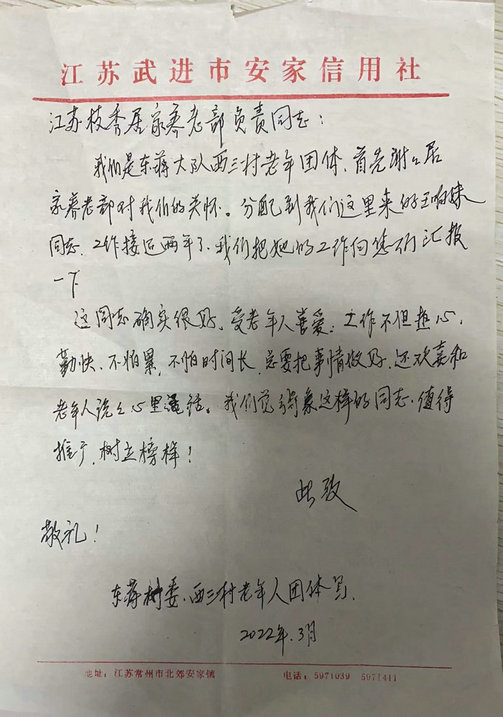 江苏武进市安家信用社
江苏枝秀居家养老部负责同志：
我们是东蒋大队西三村老年团体，首先谢谢居
家养老部对我们的关怀。分配到我们这里来的王妹
同志，工作接近两年了，我们把她的工作向您们汇报
一下
这同志确实很好，受老年人喜爱，工作不但热心、
勤快、不怕累，不怕时间长，总要把事情做好，还欢喜和
老年人说说心里话。我们觉得象这样的同志，值得
推广，树立榜样！
此致
敬礼！
东蒋村委，西三村老年人团体写，
2022年.3月
地址：江苏常州市北郊安家镇 电话：5971039 5971411